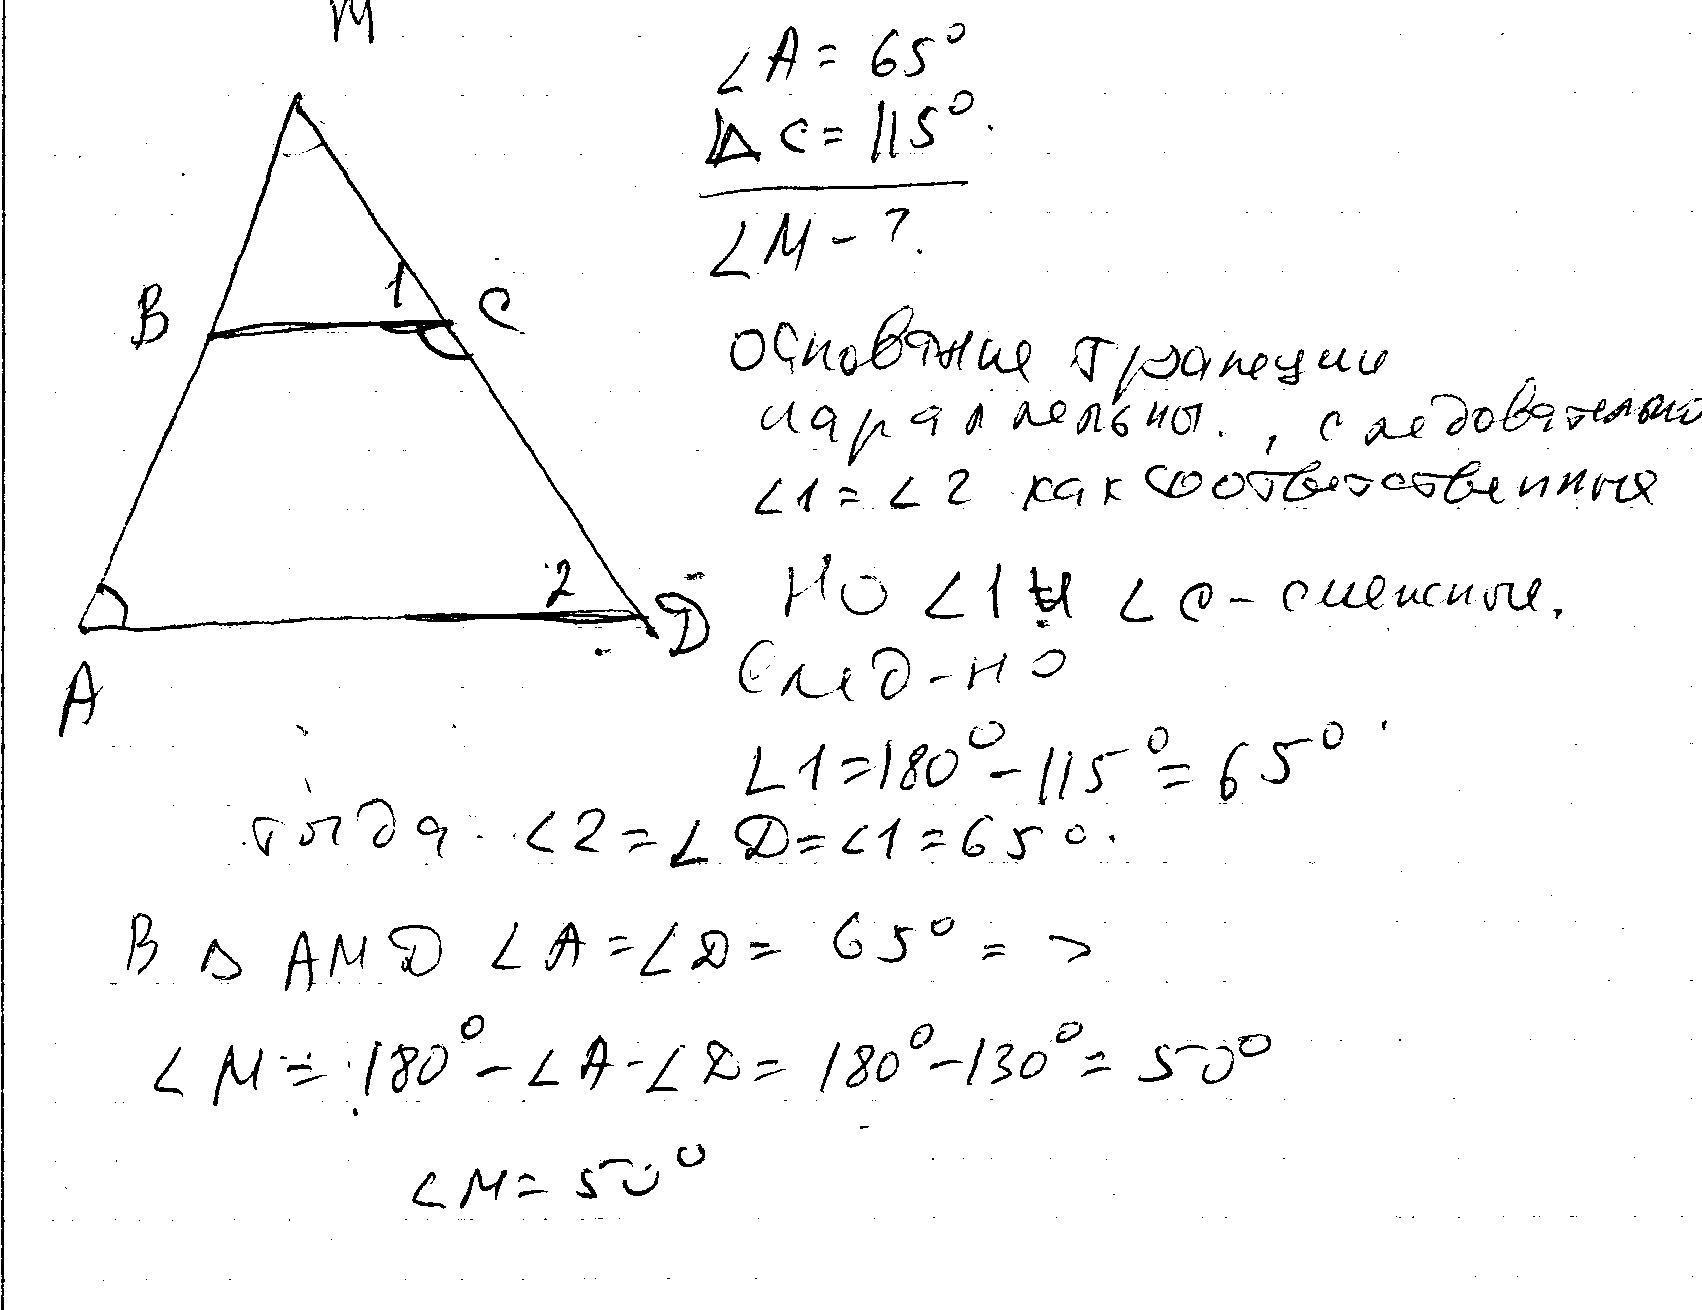 M
∠A = 65°
∠C = 115°.
∠M - ?
B
1
C
основание трапеции
параллельны., следовательно
∠1 = ∠2 как соответственные
2
D
A
НО ∠1 и ∠C - смежные.
След-но
∠1 = 180° - 115° = 65°
тогда ∠2 = ∠D = ∠1 = 65°.
В △ AMD ∠A = ∠D = 65° =>
∠M = 180° - ∠A - ∠D = 180° - 130° = 50°
∠M = 50°